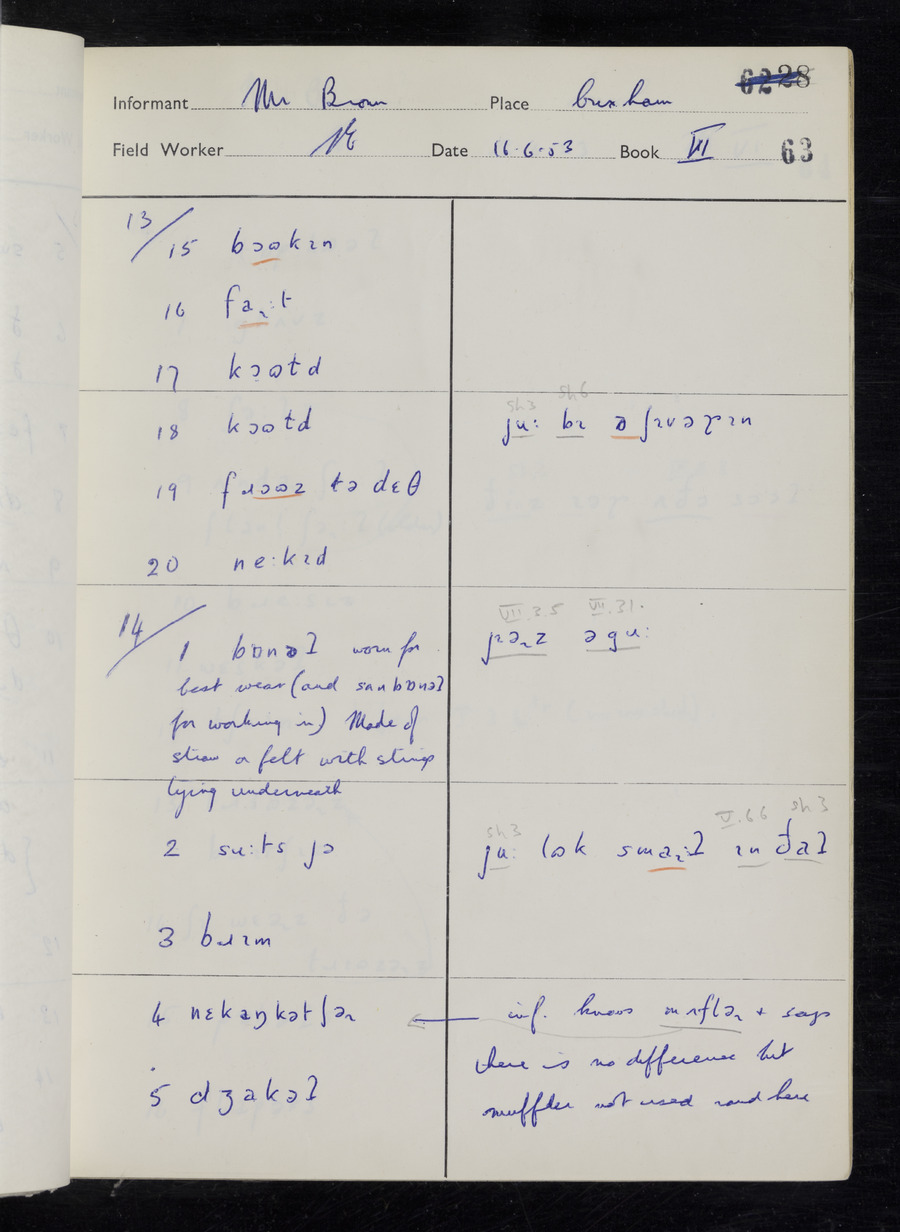 6228
Informant Mr Brown Place Brixham
Field Worker Date 16.6.53 Book VII 63
13/
15 bɔɷkɪn
16 faɹ:t
17 kɔɷtd
18 kɔɷtd
sh3 sh6
ju: bɪ ə ʃɪvəɹɪn
19 tə dɛθ
20 ne:kɪd
14/
VII.35 VII.31.
1 bɒnəʔ worn for
best wear (and sʌnbɒnəʔ
for working in) Made of
straw or felt with strings
tying underneath
əgu:
2 su:ts jə
sh3 V.66 sh3
ju: lɷk smaɹ:ʔ ɪn ðaʔ
3 bɹɪm
4 nɛkaŋkətʃəɹ
inf. knows mʌfləɹ + says
there is no difference but
muffler not used round here
5 dʒakəʔ